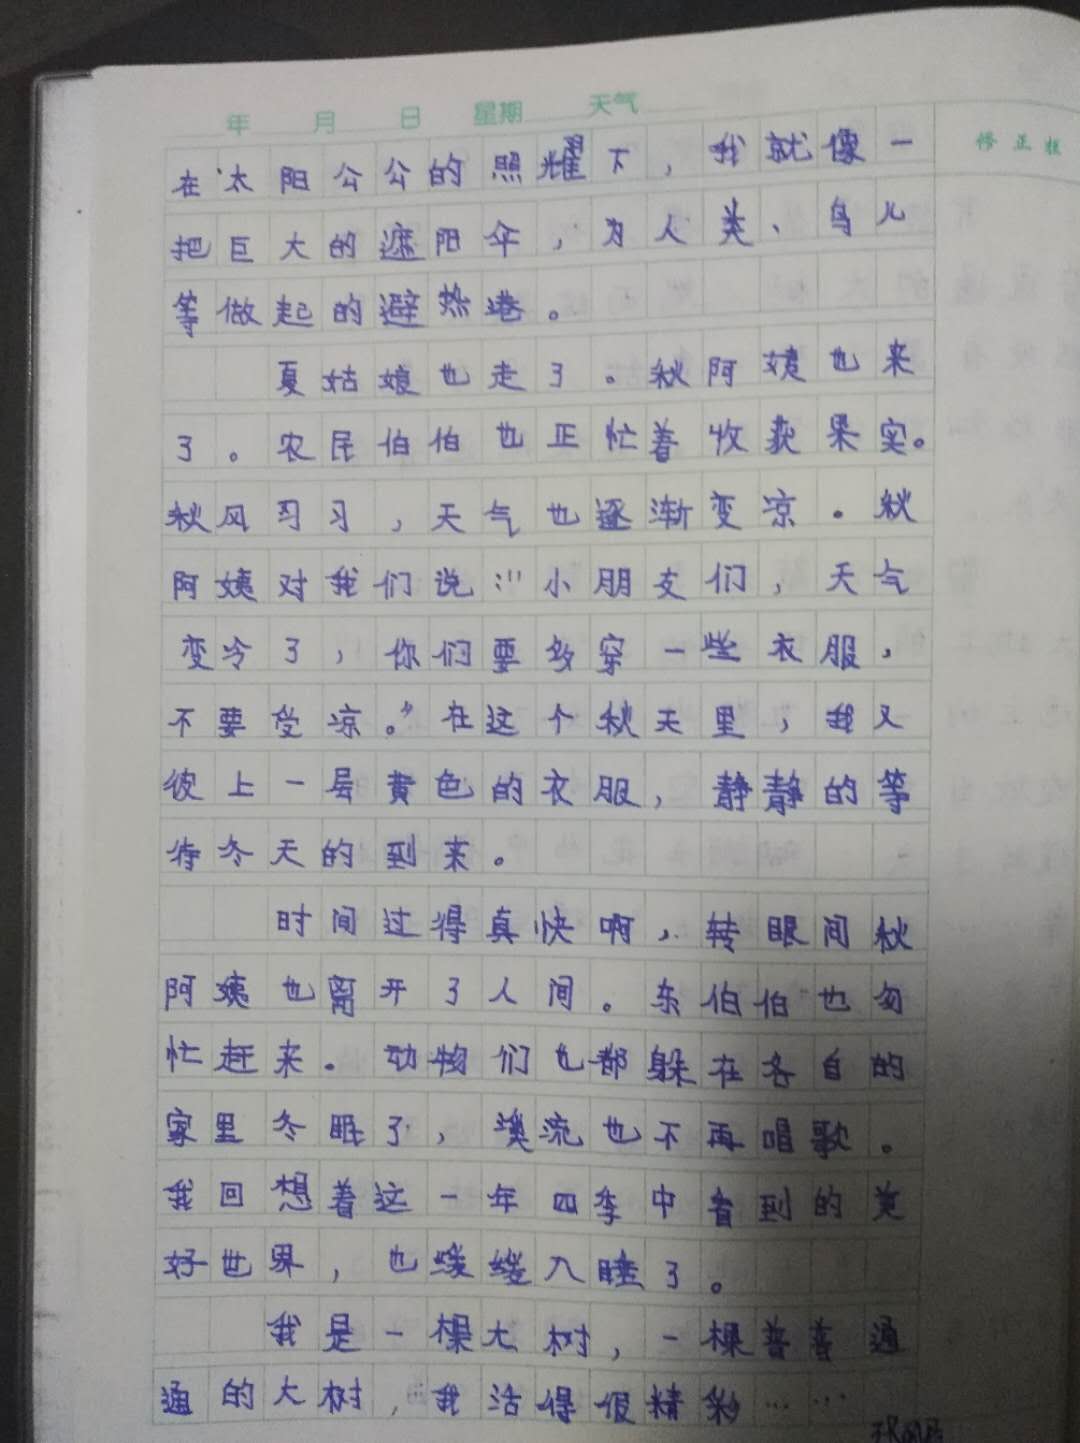 年 月 日 星期 天气
修正栏
在太阳公公的照耀下，我就像一
把巨大的遮阳伞，为人类、鸟儿
等做起的避热港。
夏姑娘也走了。秋阿姨也来
了。农民伯伯也正忙着收获果实。
秋风习习，天气也逐渐变凉。秋
阿姨对我们说：“小朋友们，天气
变冷了，你们要多穿一些衣服，
不要受凉。”在这个秋天里，我又
彼上一层黄色的衣服，静静的等
待冬天的到来。
时间过得真快啊，转眼间秋
阿姨也离开了人间。东伯伯也匆
忙赶来。动物们也都躲在各自的
家里冬眠了，溪流也不再唱歌。
我回想着这一年四季中看到的美
好世界，也缓缓入睡了。
我是一棵大树，一棵普普通
通的大树，我活得很精彩……